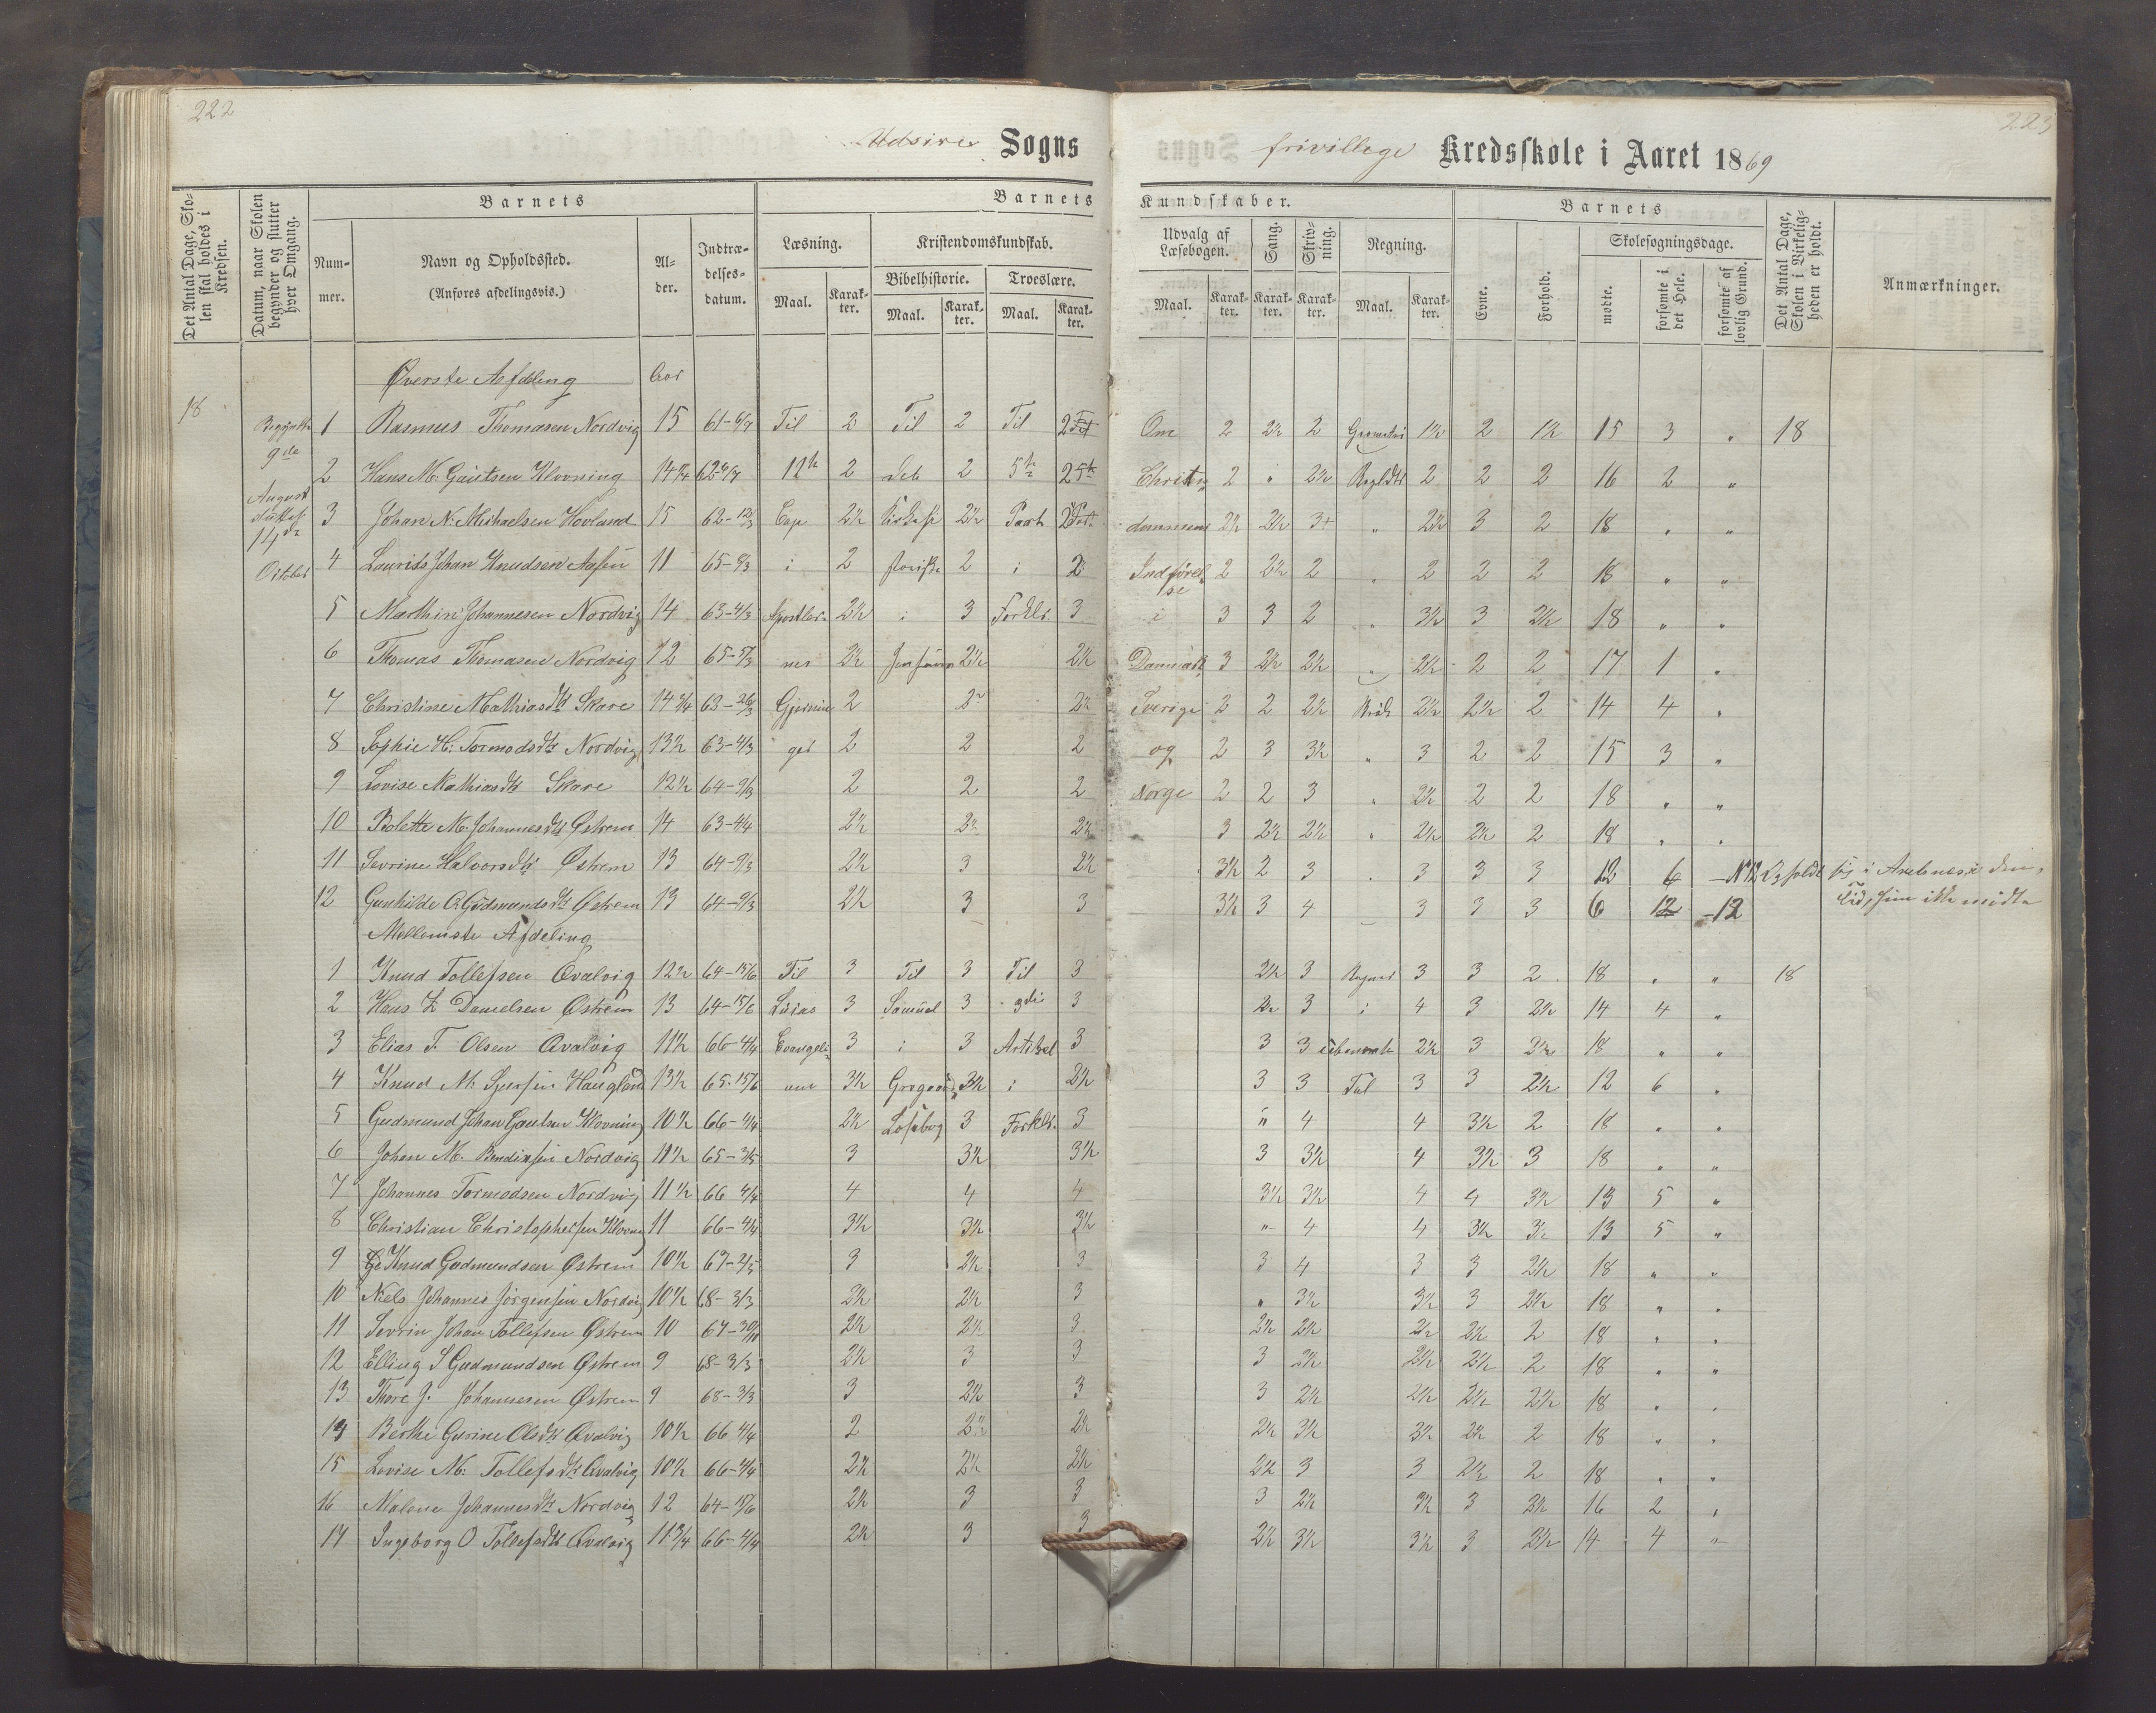 222
223
Udsire Sogns frivillege Kredsskole i Aaret 1869
Det Antal Dage, Skolen skal holdes i Kredsen.
Datum, naar Skolen begynder og slutter hver Omgang.
Barnets
Nummer.
Navn og Opholdssted.
(Anføres afdelingsvis.)
Alder.
Indtrædelsesdatum.
Barnets Kundskaber.
Læsning.
Maal. Karakter.
Kristendomskundskab.
Bibelhistorie.
Maal. Karakter.
Troeslære.
Maal. Karakter.
Udvalg af Læsebogen.
Maal. Karakter.
Sang.
Karakter.
Skrivning.
Karakter.
Regning.
Maal. Karakter.
Barnets
Evne.
Forhold.
Skolesøgningsdage.
mødte.
forsømte i det Hele.
forsømte af lovlig Grund.
Det Antal Dage, Skolen i Virkeligheden er holdt.
Anmærkninger.
Øverste Afdeling Aar
18
9de
August
14de
October
1 Rasmus Thomasen Nordvig 15 61-6/7 Til 2 Til 2 Til 2 Om 2 2½ 2 Geometri 1½ 2 1½ 15 3 " 18
2 Hans M. Gautsen Klovning 14¾ 62-6/7 12te 2 det 2 5te 2 Christen 2 " 2½ 2 2 2 16 2 "
3 Johan N. Michaelsen Hovland 15 62-12/3 Cap 2½ 2½ Part 2 dommens 2½ 2½ 3+ " 2½ 3 2 18 " "
4 Laurits Johan Knudsen 11 65-6/3 i 2 2 i 2 Indførelse 2 2½ 2 " 2 2 2 18 " "
5 Marthin Johannesen Nordvig 14 63-4/3 Apostler 2½ i 3 Forklr. 3 i 3 3 2 " 3½ 3 2½ 18 " "
6 Thomas Thomasen Nordvig 12 65-5/3 nes 2½ 2½ 2½ Danmark 3 2½ 2½ " 2½ 2 2 17 1 "
7 Christine Mathiasdtr Skare 14¾ 63-26/3 Gjernin 2 2 2½ Sverige 2 2 2½ 2½ 2½ 2 14 4 "
8 Sophie H. Tormodsdtr Nordvig 13½ 63-4/3 ger 2 2 2 og 2 3 3½ " 3 2 2 15 3 "
9 Lovise Mathiasdtr Skare 12½ 64-9/3 2 2 2 Norge 2 2 3 " 2½ 2 2 18 " "
10 Bolette M. Johannesdtr Østrem 14 63-4/4 2½ 2½ 2½ 3 2½ 2½ " 2½ 2½ 2 18 " "
11 Sevrine Halvorsdtr Østrem 13 64-9/3 2½ 3 2½ 3½ 2 3 " 3 3 3 12 6 N 12 Opholdt sig i den
12 Gunhilde O. Gudmundsdtr Østrem 13 64-9/3 2½ 3 3 3½ 3 4 3 3 3 6 12 12 Tid, hun ikke mødte
Mellemste Afdeling
1 Knud Tollefsen Qvalvig 12½ 64-15/6 Til 3 Til 3 Til 3 2½ 3 Regner 3 3 2 18 " " 18
2 Hans Danielsen Østrem 13 64-15/6 3 Samuel 3 3die 3 3 i 4 3 2½ 14 4 "
3 Elias T. Olsen Qvalvig 11½ 66-4/4 Evangeli 3 i 3 Artikel 3 3 3 ubenevnte 2½ 3 3½ 18 " "
4 Knud M. 13½ 65-15/6 3½ 3½ i 2½ 3 3 Tal 3 3 2½ 12 6 "
5 Gudmund Johan Gautsen Klovning 10½ 66-4/4 2½ Læsebog 3 Forklr. 3 " 4 4 3½ 2 18 " "
6 Johan M. Nordvig 11½ 65-3/5 3 3½ 3½ 3 3½ 4 3½ 3 18 " "
7 Johannes Tormodsen Nordvig 11½ 66 4/4 4 4 4 3½ 3½ 4 4 3½ 13 5 "
8 Christian Christophersen Klovning 11 66-4/4 3½ 3½ 3½ " 4 4 3½ 3½ 13 5 "
9 Knud Gudmundsen Østrem 10½ 67-2/5 3 2½ 3 3 4 3 3 2½ 18 " "
10 Niels Johannes Jørgensen Nordvig 10½ 68-3/3 2½ 2½ 3 " 3½ 3½ 3 2½ 18 " "
11 Sevrin Johan Tollefsen Østrem 10 67-30/11 2½ 2½ 3 2½ 2½ 2½ 2½ 2 18 " "
12 Elling S Gudmundsen Østrem 9 68-3/3 2½ 3 3 3 2½ 2½ 2½ 2 18 " "
13 Thore J. Johannesen Østrem 9 68-3/3 3 2½ 3 3 2½ 2½ 2½ 2½ 18 " "
14 Berthe Gurine Olsdtr Qvalvig 10½ 66 4/4 2 2½ 2½ 2½ 3½ 3½ 2½ 2 18 " "
15 Lovise M. Tollefsdtr Qvalvig 10½ 66-4/4 2½ 2½ 2½ 2½ 3 3 2½ 2 18 " "
16 Malene Johannesdtr Nordvig 12 64-15/6 2½ 3 3 3 2½ 3½ 3 2½ 16 2 "
17 Ingeborg O Tollefsdtr Qvalvig 11¾ 66-4/4 2½ 3 3 2½ 3½ 3½ 3 2½ 14 4 "